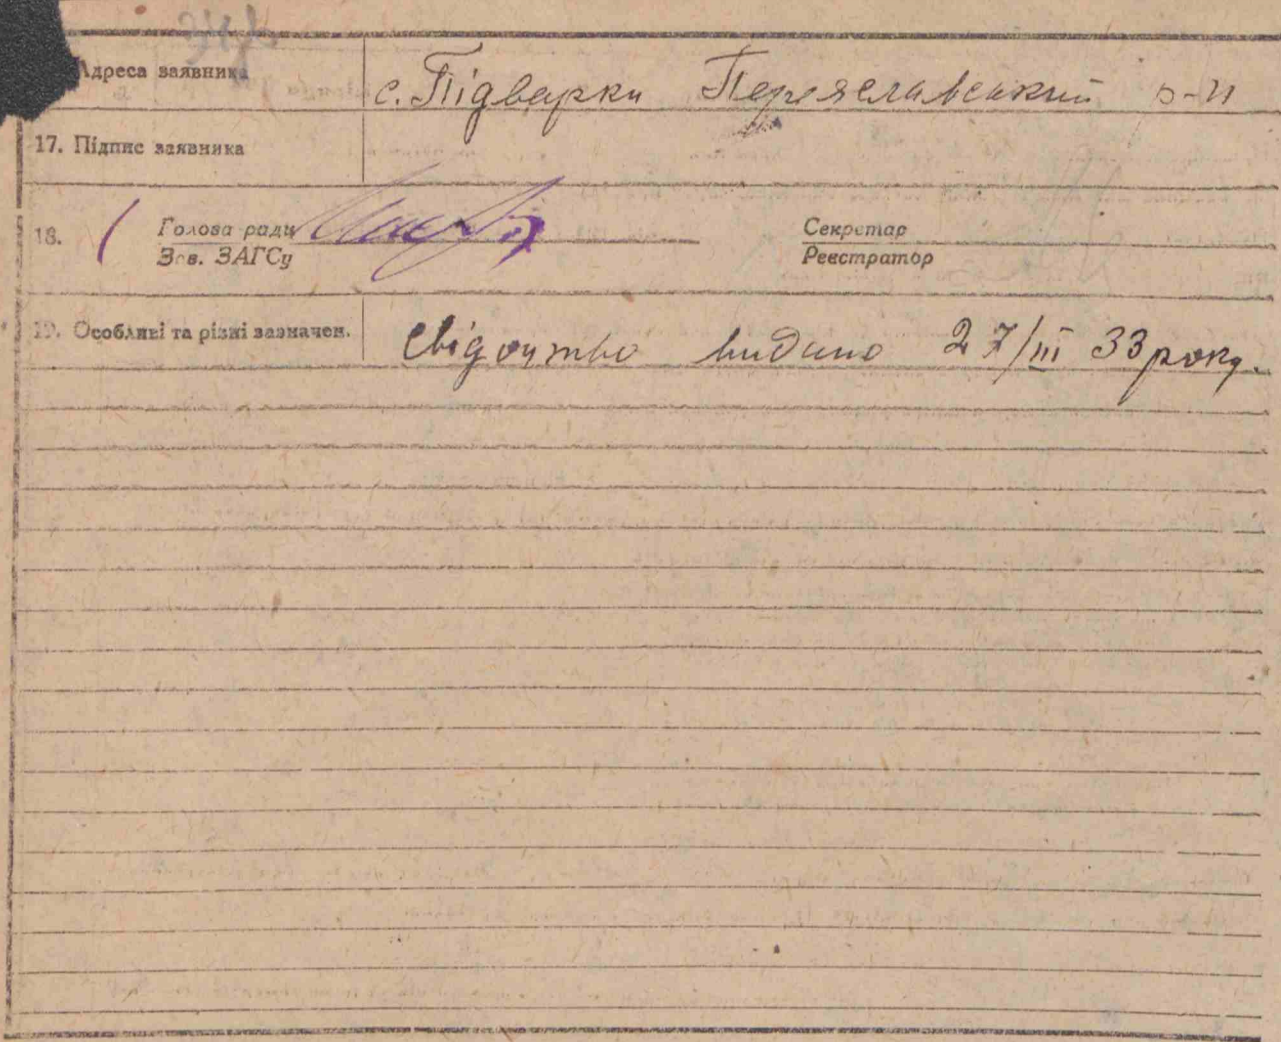 Адреса заявника с. Підварки Переяславський р-н
17. Підпис заявника
18. Голова ради Секретар
Зав. ЗАГСу Реєстратор
19. Особливі та різні зазначен. свідоцтво видано 27/III 33 року.